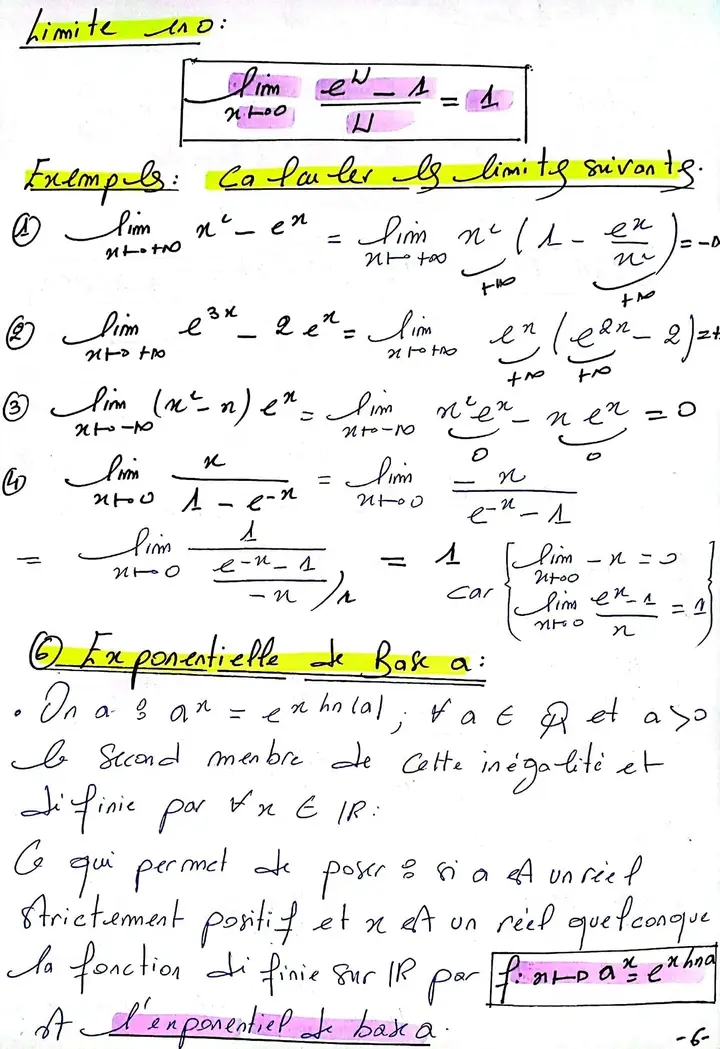 Limite en 0:
lim x→0 (e^u - 1)/u = 1
Exemples: Calculer les limites suivantes.
① lim x→+∞ x² - e^x = lim x→+∞ x² (1 - e^x/x²) = -∞
+∞ +∞
② lim x→+∞ e^3x - 2e^x = lim x→+∞ e^x (e^2x - 2) = +
+∞ +∞
③ lim x→-∞ (x² - x) e^x = lim x→-∞ x²e^x - x e^x = 0
0 0
④ lim x→0 x/(1 - e^-x) = lim x→0 -x/(e^-x - 1)
= lim x→0 1/((e^-x - 1)/-x) = 1 car { lim x→0 -x = 0
1
lim x→0 (e^x - 1)/x = 1 }
⑥ Exponentielle de Base a:
• On a : a^x = e^x ln(a), ∀ a ∈ Q et a>0
le second menbre de cette inégalité et
définie par ∀ x ∈ IR:
Ce qui permet de poser : si a est un réel
strictement positif et x est un réel quelconque
la fonction définie sur IR par f: x→ a^x = e^x lna
est l'exponentiel de base a.
-6-